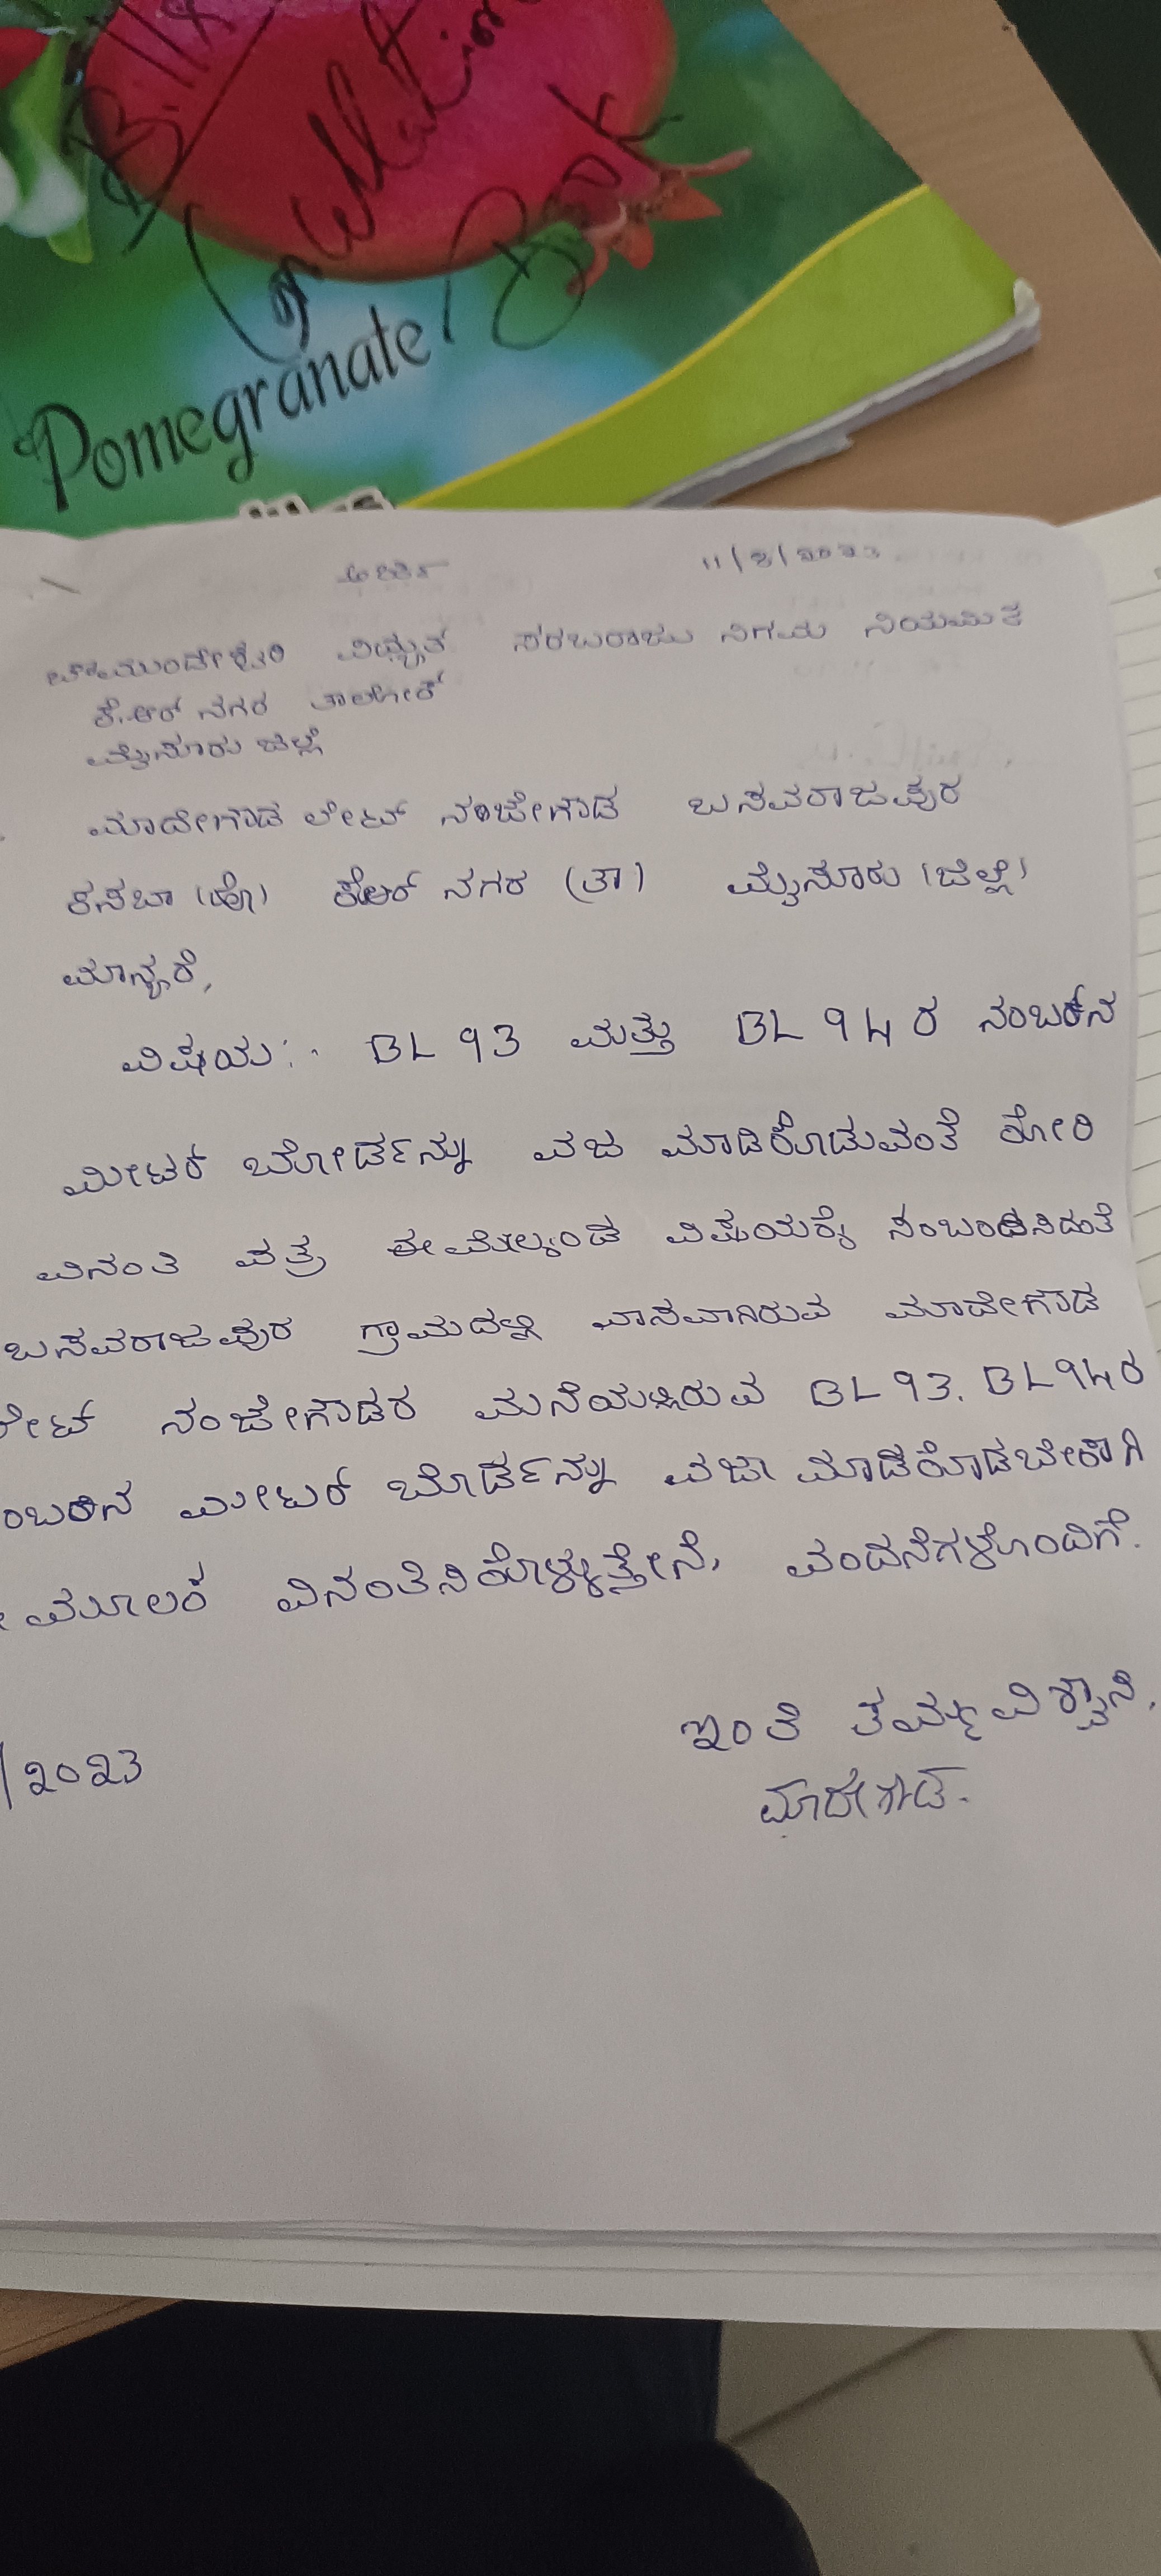 B.11x
Consultation
Book
Pomegranate
ಅರ್ಜಿ 11/8/2023
ಚಾಮುಂಡೇಶ್ವರಿ ವಿದ್ಯುತ್ ಸರಬರಾಜು ನಿಗಮ ನಿಯಮಿತ
ಕೆ.ಆರ್ ನಗರ ತಾಲೋಕ್
ಮೈಸೂರು ಜಿಲ್ಲೆ
ಮಾದೇಗೌಡ ಲೇಟ್ ನಂಜೇಗೌಡ ಬಸವರಾಜಪುರ
ಕಸಬಾ (ಹೊ) ಕೆಆರ್ ನಗರ (ತಾ) ಮೈಸೂರು (ಜಿಲ್ಲೆ)
ಮಾನ್ಯರೆ,
ವಿಷಯ:. BL 93 ಮತ್ತು BL 94 ರ ನಂಬರ್‌ನ
ಮೀಟರ್ ಬೋರ್ಡನ್ನು ವಜ ಮಾಡಿಕೊಡುವಂತೆ ಕೋರಿ
ವಿನಂತಿ ಪತ್ರ ಈ ಮೇಲ್ಕಂಡ ವಿಷಯಕ್ಕೆ ಸಂಬಂಧಿಸಿದಂತೆ
ಬಸವರಾಜಪುರ ಗ್ರಾಮದಲ್ಲಿ ವಾಸವಾಗಿರುವ ಮಾದೇಗೌಡ
ಲೇಟ್ ನಂಜೇಗೌಡರ ಮನೆಯಲ್ಲಿರುವ BL 93. BL 94 ರ
ಂಬರಿನ ಮೀಟರ್ ಬೋರ್ಡನ್ನು ವಜಾ ಮಾಡಿಕೊಡಬೇಕಾಗಿ
ಮೂಲಕ ವಿನಂತಿಸಿಕೊಳ್ಳುತ್ತೇನೆ, ವಂದನೆಗಳೊಂದಿಗೆ.
ಇಂತಿ ತಮ್ಮ ವಿಶ್ವಾಸಿ,
/2023
ಮಾದೇಗೌಡ.